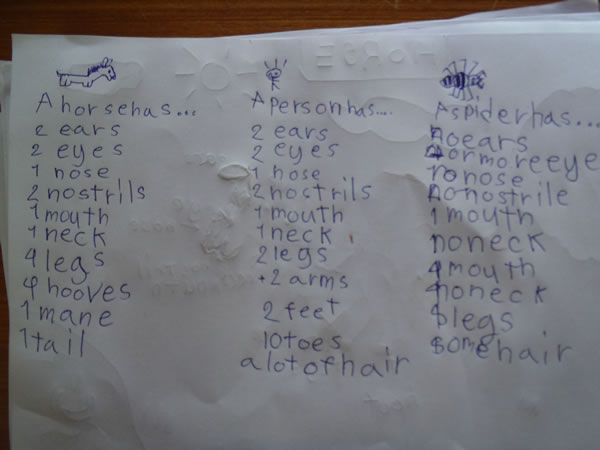 A horse has...
2 ears
2 eyes
1 nose
2 nostrils
1 mouth
1 neck
4 legs
4 hooves
1 mane
1 tail
A person has....
2 ears
2 eyes
1 nose
2 nostrils
1 mouth
1 neck
2 legs
+2 arms
2 feet
10 toes
a lot of hair
A spider has...
no ears
4 or more eye
no nose
no nostrile
1 mouth
no neck
1 mouth
no neck
8 legs
some hair
HORSE